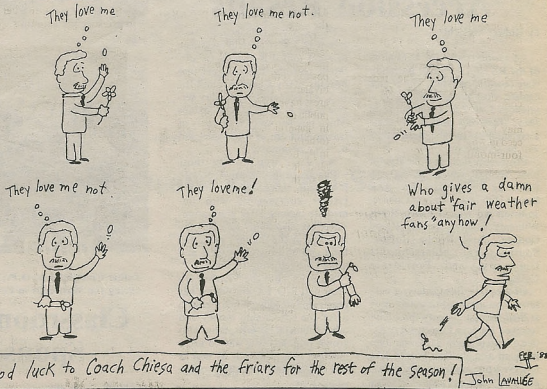 They love me
They love me not.
They love me
They love me not.
They love me!
Who gives a damn
about "fair weather
fans" anyhow!
od luck to Coach Chiesa and the Friars for the rest of the season!
FEB.
John LAVALLEE